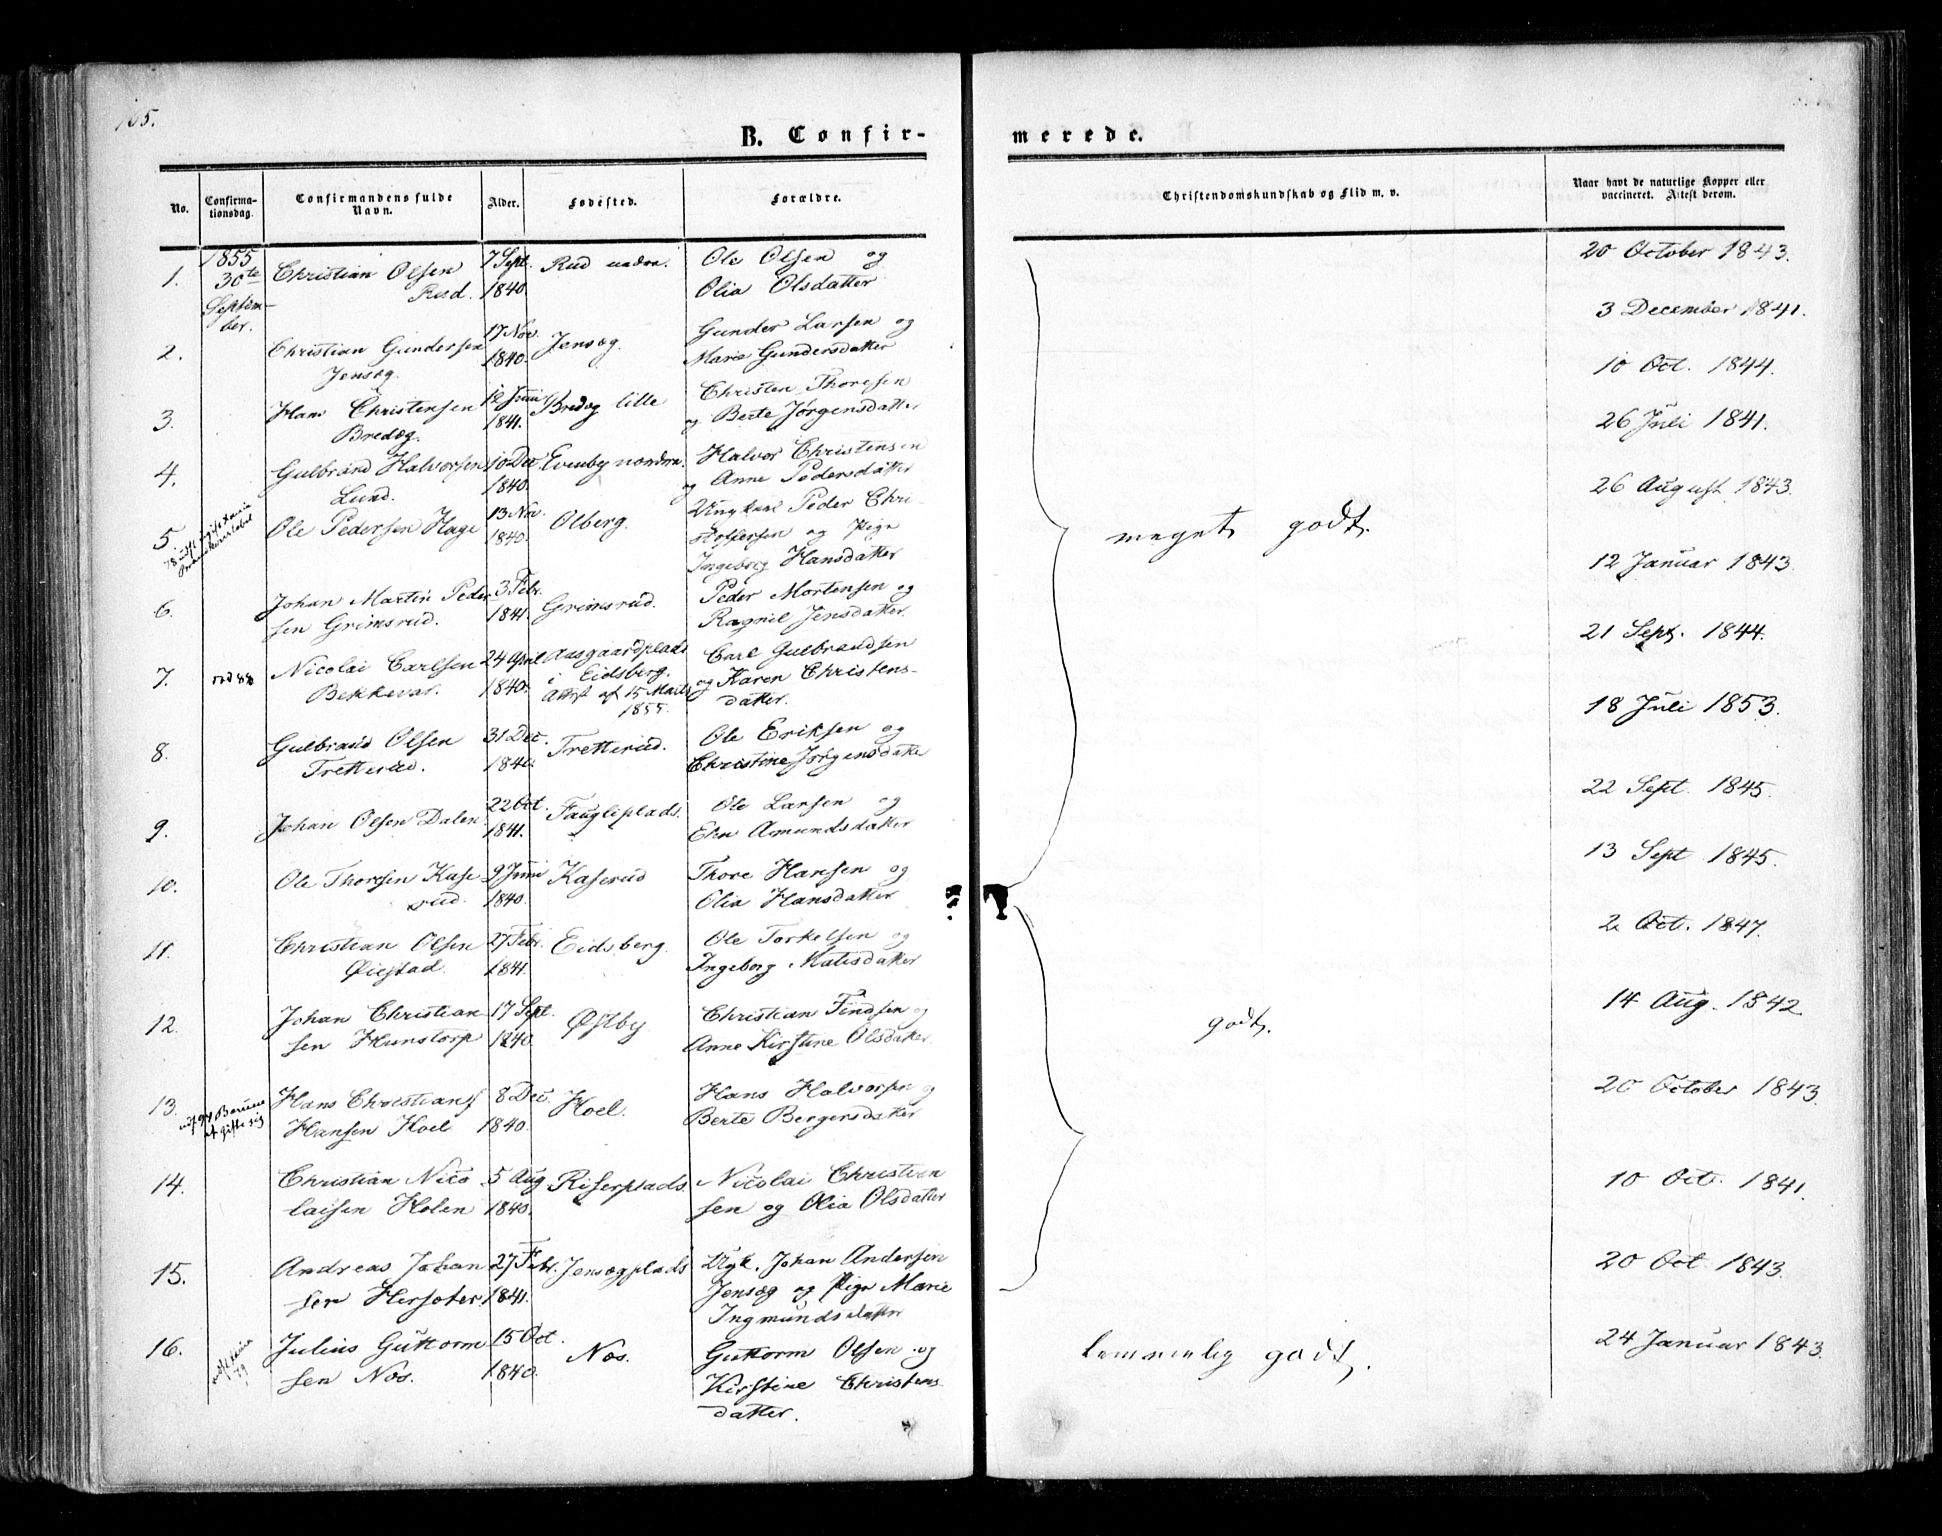 165.
B. Confir-
merede.
No.
Confirma-
tionsdag.
Confirmandens fulde
Navn.
Alder.
Fødested.
Forældre.
Christendomskundskab og Flid m. v.
Naar havt de naturlige Kopper eller
vaccineret. Attest derom.
1855
30te
Septem-
ber.
1. Christian Olsen 7 Sept. Rud nedre. Ole Olsen og 20 October 1843.
Rud. 1840 Olia Olsdatter
2. Christian Gundersen 17 Nov. Jensøg. Gunder Larsen og 3 December 1841.
Jensøg. 1840. Marie Gundersdatter
3. Hans Christensen 12 Juni Bredøg lille Christen Thoresen 10 Oct. 1844.
Bredøg. 1841. og Berte Jørgensdatter
4. Gulbrand Halvorsen 10 Dec Evenby nordre. Halvor Christensen 26 Juli 1841.
Lund. 1840. og Anne Pedersdatter
5 Ole Pedersen Hage 13 Nov. Olberg. Ungkarl Peder Chri- 26 August 1843.
1840. stoffersen og Pige
Ingeborg Hansdatter
meget godt.
6. Johan Martin Peder- 3 Febr. Grimsrud. Peder Mortensen og 12 Januar 1843.
sen Grimsrud. 1841. Ragnil Jensdatter.
7. Nicolai Carlsen 24 April Aasgaardplads Carl Gulbrandsen 21 Sept. 1844.
Bekkevar. 1840. i Eidsberg. og Karen Christens-
Attest af 15 Marts datter.
1855.
8. Gulbrand Olsen 31 Dec. Tretterud. Ole Eriksen og 18 Juli 1853.
Tretterud. 1840. Christine Jørgensdatter
9. Johan Olsen Dalen 22 Oct. Faugliplads. Ole Larsen og 22 Sept. 1845.
1841. Amundsdatter
10. Ole Thoresen Kase- 9 Juni Kaserud Thore Hansen og 13 Sept 1845.
rud. 1840. Olia Hansdatter
11. Christian Olsen 27 Febr. Eidsberg. Ole Torkelsen og 2 Oct. 1847.
Øiestad. 1841. Ingeborg Matisdatter
12. Johan Christian- 17 Sept. Østby Christian Findsen og 14 Aug. 1842.
sen Hunstorp 1840. Anne Kirstine Olsdatter.
godt.
13. Hans Christians 8 Dec. Hoel. Hans Halvorsen og 20 October 1843.
Hansen Hoel 1840. Berte Bergersdatter
14. Christian Nico- 5 Aug Riserplads. Nicolai Christian 10 Oct. 1841.
laisen Holen 1840. sen og Olia Olsdatter
15. Andreas Johan 27 Febr. Jensøgplads Ugk. Johan Andersen 20 Oct 1843.
sen Hersøter. 1841. Jensøg og Pige Marie
Ingmundsdatter
16. Julius Guttorm- 15 Oct. Nos. Guttorm Olsen og 24 Januar 1843.
sen Nos. 1840. Kirstine Christens
datter.
temmelig godt.